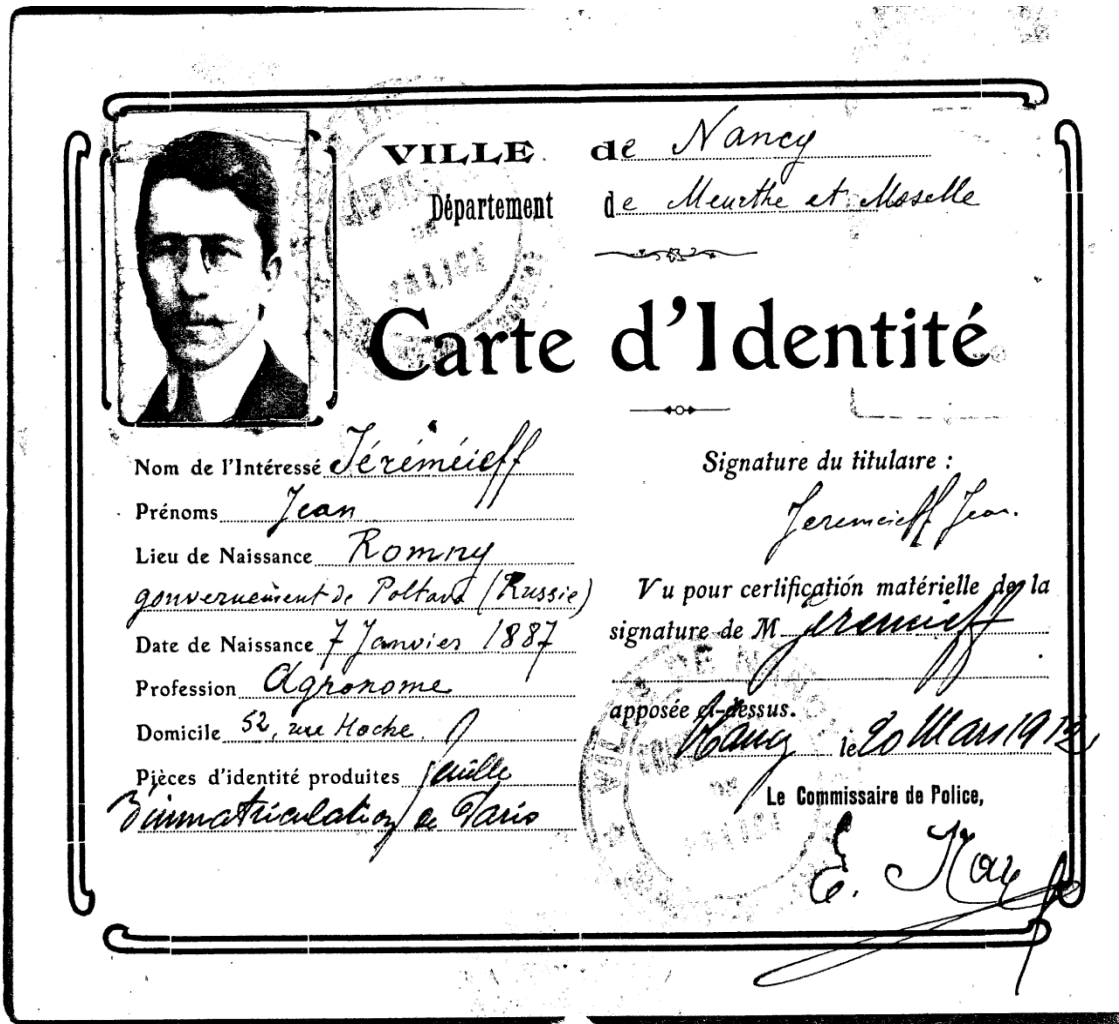 VILLE de Nancy
Département de Meurthe et Moselle
Carte d'Identité
Nom de l'Intéressé Jéréméieff
Prénoms Jean
Lieu de Naissance Romny
gouvernement de Poltava (Russie)
Date de Naissance 7 Janvier 1887
Profession Agronome
Domicile 52, rue Hoche
Pièces d'identité produites feuille
d'immatriculation de Paris
Signature du titulaire :
Jeremeieff Jean.
Vu pour certification matérielle de la
signature de M Jeremeieff
apposée ci-dessus.
Nancy le 20 Mars 1912
Le Commissaire de Police,
E.
POLICE
VILLE DE
POLICE